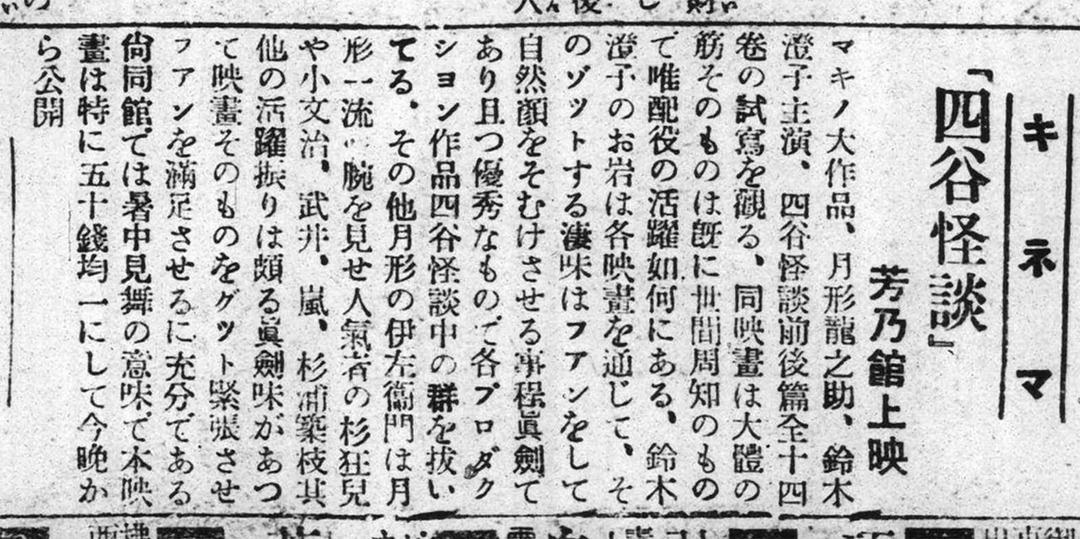 キネマ
「四谷怪談」
芳乃館上映
マキノ大作品、月形龍之助、鈴木
澄子主演、四谷怪談前後篇全十四
巻の試寫を觀る、同映畫は大體の
筋そのものは旣に世間周知のもの
で唯配役の活躍如何にある、鈴木
澄子のお岩は各映畫を通じて、そ
のゾットする凄味はフアンをして
自然顏をそむけさせる事程眞劍で
あり且つ優秀なもので各プロダク
シヨン作品四谷怪談中の群を抜い
てる、その他月形の伊左衞門は月
形一流の腕を見せ人氣者の杉狂兒
や小文治、武井、嵐、杉浦築枝其
他の活躍振りは頗る眞劍味があつ
て映畫そのものをグット緊張させ
フアンを滿足させるに充分である
尙同館では暑中見舞の意味で本映
畫は特に五十錢均一にして今晩か
ら公開